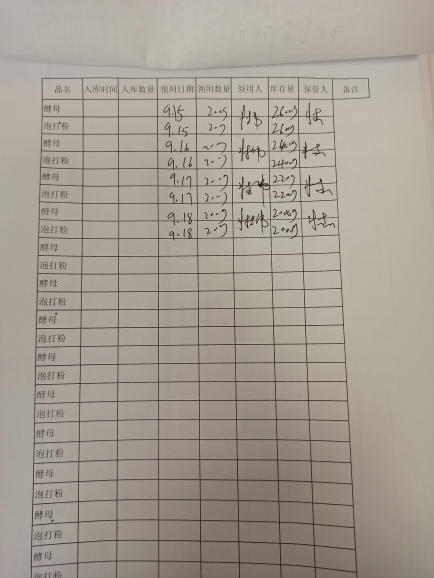 品名 入库时间 入库数量 领用日期 领用数量 领用人 库存量 保管人 备注
酵母 9.15 200g 2600g
泡打粉 9.15 200g 2600g
酵母 9.16 200g 2400g
泡打粉 9.16 200g 2400g
酵母 9.17 200g 2200g
泡打粉 9.17 200g 2200g
酵母 9.18 200g 2000g
泡打粉 9.18 200g 2000g
酵母
泡打粉
酵母
泡打粉
酵母
泡打粉
酵母
泡打粉
酵母
泡打粉
酵母
泡打粉
酵母
泡打粉
酵母
泡打粉
酵母
泡打粉